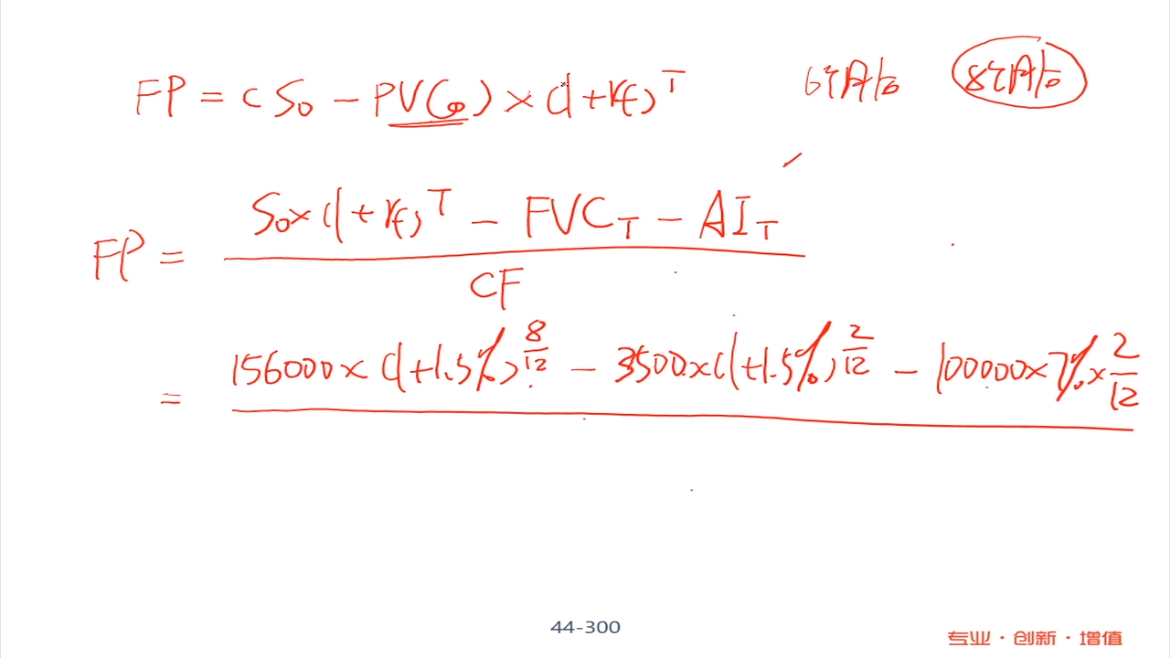 FP = (S₀ - PVC₀) × (1+rf)ᵀ 6个月后 8个月后
S₀×(1+rf)ᵀ - FVC_T - AI_T
FP =
CF
= 156000×(1+1.5%)^8/12 - 3500×(1+1.5%)^2/12 - 100000×7%×2/12
44-300
专业·创新·增值